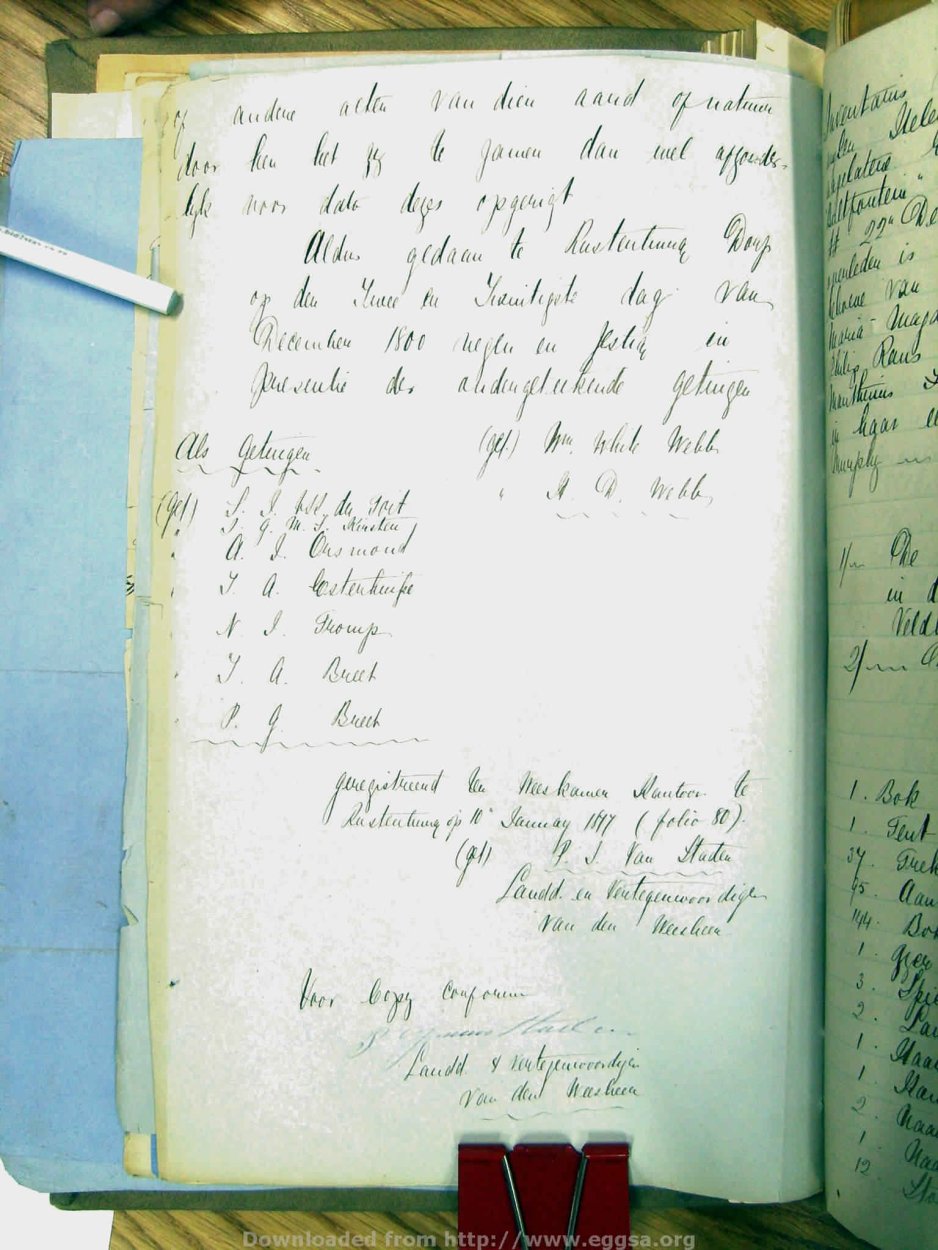 of andere akten van dien aard of natuur
door hen het zy te zamen dan wel afzonder-
lyk voor dato dezes opgerigt
Aldus gedaan te Rustenburg Dorp
op den Twee en Twintigste dag van
December 1800 negen en zestig in
presentie der ondergeteekende getuigen
Als Getuigen
(get.) Wm. White Webb
" H. D. Webb
(get) S. J. du Toit
J. G. M. S. Kirsten
A. J. Orsmond
J. A. Oostenhuise
N. J. Tromp
J. A. Breet
P. G. Breet
geregistreerd ten Weeskamer Kantoor te
Rustenburg op 10 January 1877 (folio 80).
(get) P. J. Van Staden
Landd. en Vertegenwoordiger
van den Weesheer
Voor Copy conform
P. J. van Staden
Landd & Vertegenwoordiger
van den Weesheer
Inventaris
Maria Magda
Philip Rans
in haar
1/ De
in d
Veld
2/
1. Bok
1. Tent
37. Trek
95. Aan
144. Bok
1.
3.
2.
1.
1.
2.
1.
12
Downloaded from http://www.eggsa.org